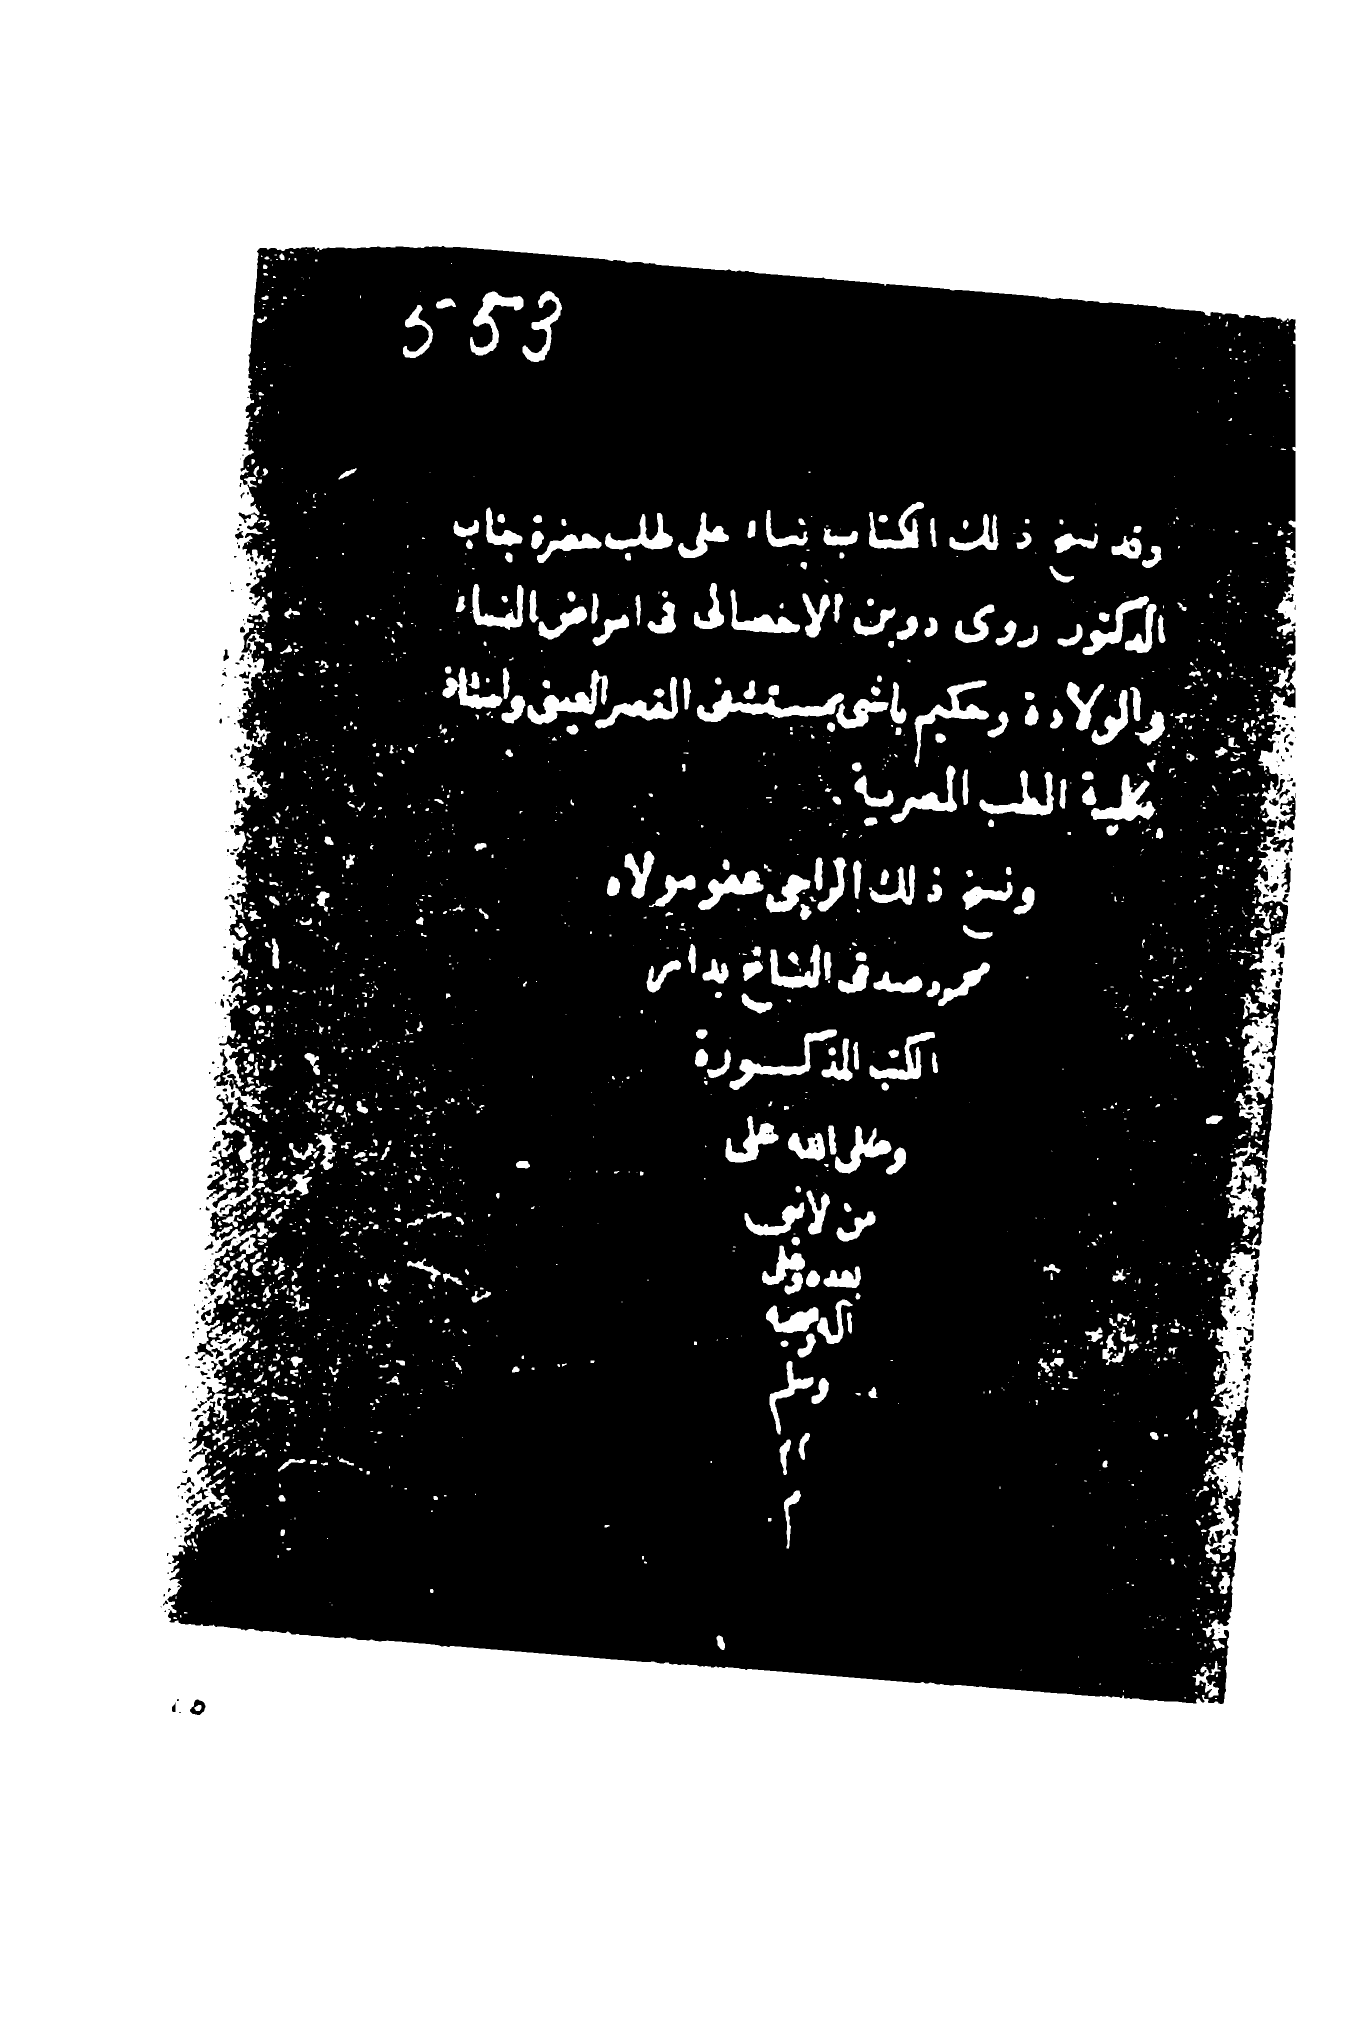 553
وقد نسخ ذلك الكتاب بناء على طلب حضرة جناب
الدكتور روى دوبن الاخصالى فى امراض النساء
والولادة وحكيم باشى بمستشفى القصر العينى واستاذ
بكلية الطب المصرية .
ونسخ ذلك الراجى عفو مولاه
محمود صدقى النساخ بدار
الكتب المذكورة
وصلى الله على
من لا نبى
بعده وعلى
آله وصحبه
وسلم
م م
م